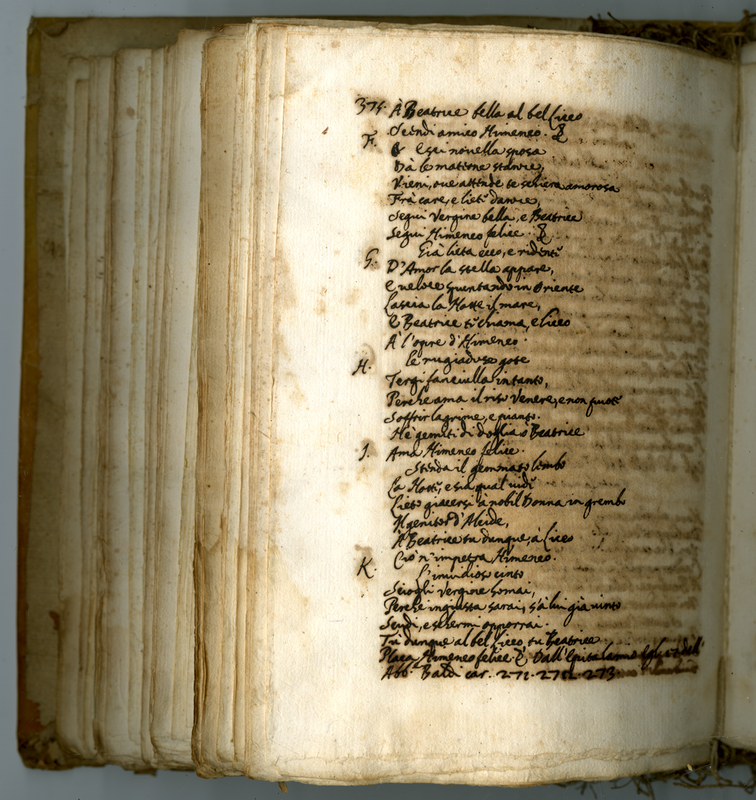 375. À Beatrice bella al bel Liceo
Scendi amico Himeneo.
F. Esci novella sposa
Dà le materne stanze,
Vieni, ove attende te schiera amorosa
Frà care, e liete danze,
Segui Vergine bella, e Beatrice
Segui Himeneo felice.
G. Già lieta ecco, e ridente
D'Amor la stella appare,
E veloce spuntando in Oriente
Lascia la Notte il mare,
E Beatrice ti chiama, e Liceo
À l'opre d'Himeneo.
H. Le rugiadose gote
Tergi fanciulla intanto,
Perche ama il riso Venere, e non puote
Soffrir lagrime, e pianto.
Nè gemiti di doglia ò Beatrice
I. Ama Himeneo felice.
Stenda il gemmato lembo
La Notte, e sia qual vide
Lieto giacersi à nobil Donna in grembo
Il genitor d'Alcide,
À Beatrice tu dunque, à Liceo
Ciò n'impetra Himeneo.
K. L'invidioso cinto
Sciogli Vergine homai,
Perche ingiusta sarai, s'à lui già vinto
Scudi, e schermi opporrai.
Tù dunque al bel Liceo, tu Beatrice
Placa Himeneo felice. Dall'Epitalamio dell'
Abb. Baldi car. 271. 272. 273.